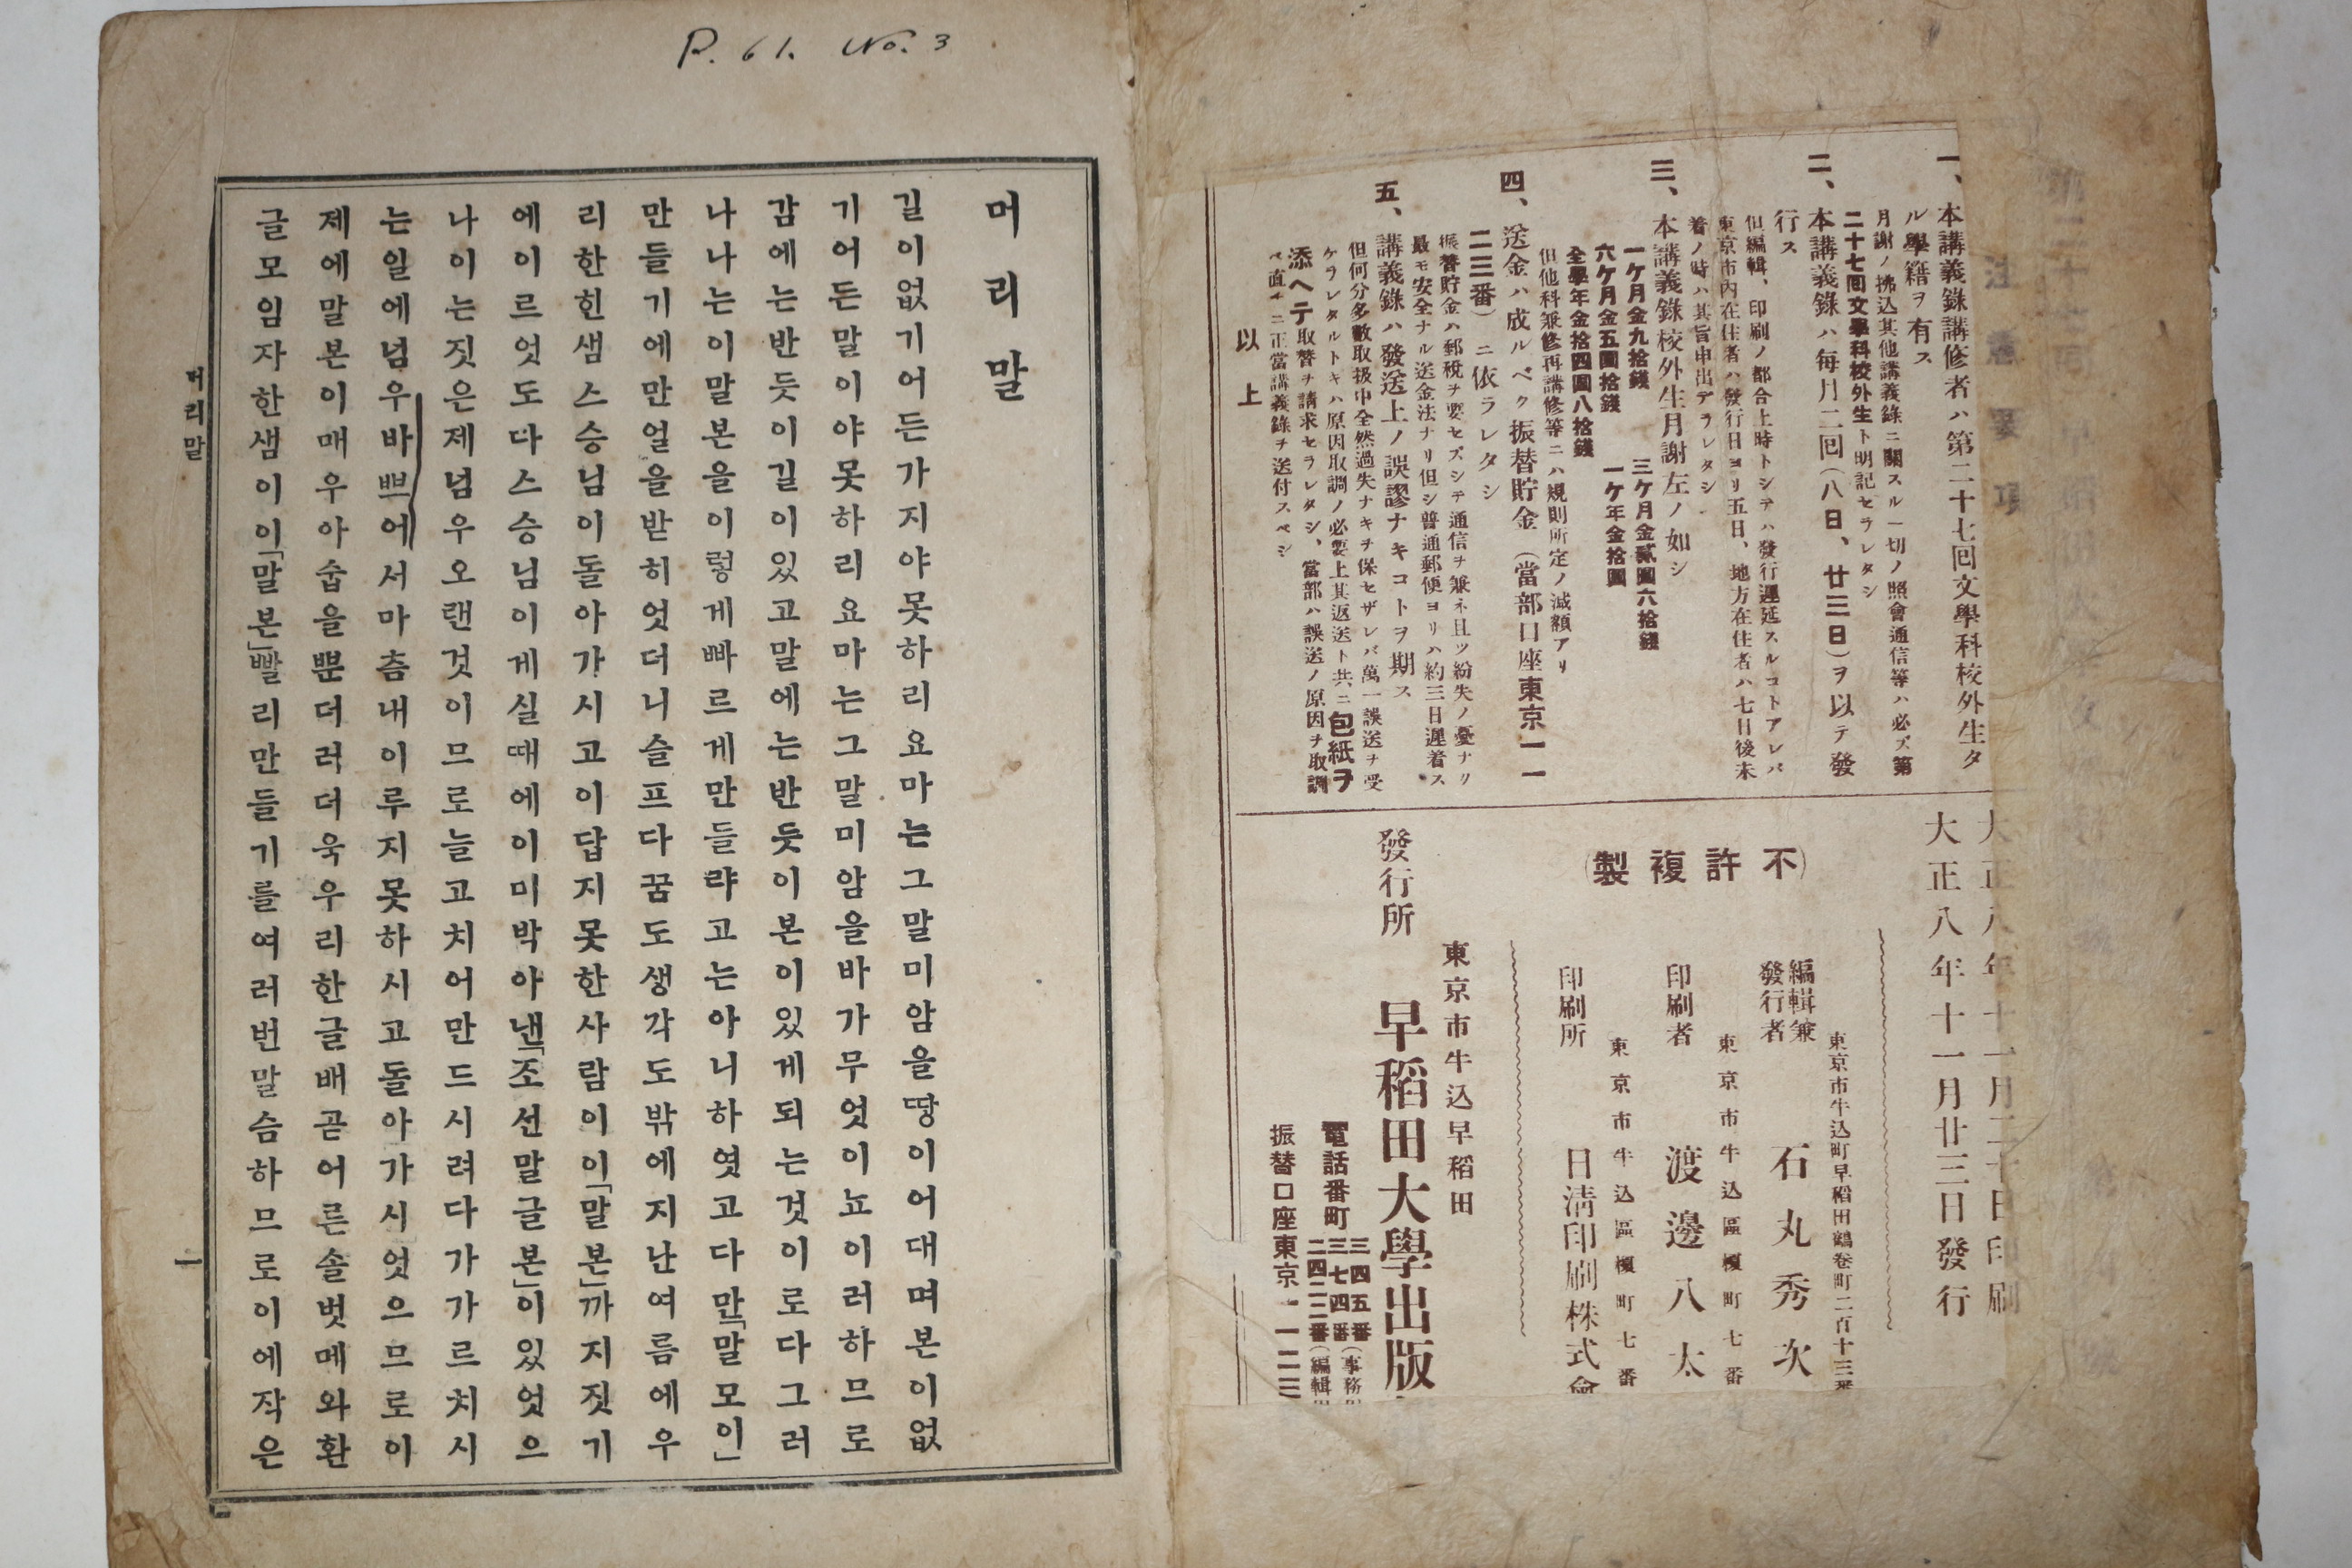 一、本講義錄講修者ハ第二十七回文學科校外生タ
ル學籍ヲ有ス
月謝ノ拂込其他講義錄ニ關スル一切ノ照會通信等ハ必ズ第
二十七回文學科校外生ト明記セラレタシ
二、本講義錄ハ每月二回(八日、廿三日)ヲ以テ發
行ス
但編輯、印刷ノ都合上時トシテハ發行遲延スルコトアレバ
東京市內在住者ハ發行日ヨリ五日、地方在住者ハ七日後未
着ノ時ハ其旨申出デラレタシ
三、本講義錄校外生月謝左ノ如シ
一ケ月金九拾錢 三ケ月金貳圓六拾錢
六ケ月金五圓拾錢 一ケ年金拾圓
全學年金拾四圓八拾錢
但他科兼修再講修等ニハ規則所定ノ減額アリ
四、送金ハ成ルベク振替貯金(當部口座東京一一
二三番)ニ依ラレタシ
振替貯金ハ郵稅ヲ要セズシテ通信ヲ兼ネ且ツ紛失ノ憂ナリ
最モ安全ナル送金法ナリ但シ普通郵便ヨリハ約三日遲着ス
五、講義錄ハ發送上ノ誤謬ナキコトヲ期ス
但何分多數取扱中全然過失ナキヲ保セザレバ萬一誤送ヲ受
ケラレタルトキハ原因取調ノ必要上其返送ト共ニ包紙ヲ
添ヘテ取替ヲ請求セラレタシ、當部ハ誤送ノ原因ヲ取調
ベ直チニ正當講義錄ヲ送付スベシ
以上
大正八年十一月二十日印刷
大正八年十一月廿三日發行
(不許複製)
東京市牛込町早稻田鶴卷町二百十三番
編輯兼發行者 石丸秀次
東京市牛込區榎町七番
印刷者 渡邊八太
東京市牛込區榎町七番
印刷所 日淸印刷株式會
東京市牛込早稻田
發行所 早稻田大學出版
電話番町 三四五番(事務
三七四番
二四二二番(編輯
振替口座東京一一二三
P. 61. No. 3
머리말
길이없기어든가지야못하리요마는그말미암을땅이어대며본이없
기어든말이야못하리요마는그말미암을바가무엇이뇨이러하므로
감에는반듯이길이있고말에는반듯이본이있게되는것이로다그러
나나는이말본을이렇게빠르게만들랴고는아니하엿고다만「말모이」
만들기에만얼을받히엇더니슬프다꿈도생각도밖에지난여름에우
리한힌샘스승님이돌아가시고이답지못한사람이이「말본」까지짓기
에이르엇도다스승님이게실때에이미박아낸「조선말글본」이있엇으
나이는짓은제넘우오랜것이므로늘고치어만드시려다가가르치시
는일에넘우바쁘에서마츰내이루지못하시고돌아가시엇으므로이
제에말본이매우아숩을뿐더러더욱우리한글배곧어른솔벗메와환
글모임자한샘이이「말본」빨리만들기를여러번말슴하므로이에작은
머리말
一